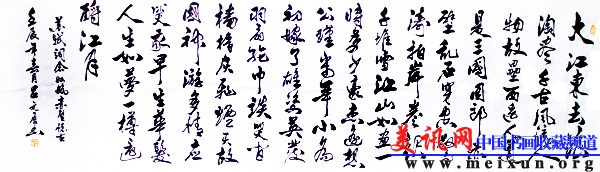 大江東去浪
淘盡千古風流人
物故壘西邊人道
是三國周郎赤
壁亂石穿空驚
濤拍岸卷起
千堆雪江山如畫一
時多少豪杰遙想
公瑾當年小喬
初嫁了雄姿英發
羽扇綸巾談笑間
檣櫓灰飛煙滅故
國神游多情應
笑我早生華髮
人生如夢一樽還
酹江月
蘇軾詞念奴嬌赤壁懷古
壬辰年
美讯网
中国书画收藏频道
www.meixun.org